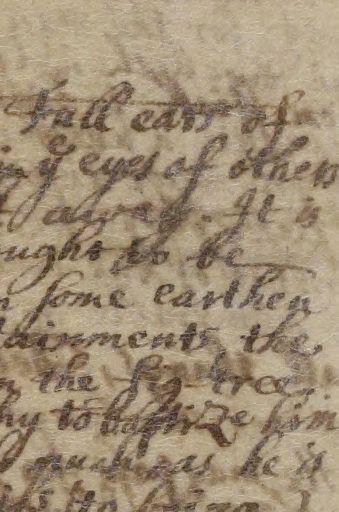 Full ears of
in yͤ eyes of others
away. It is
ought to be
some earthen
tainments the
the fig-tree,
hy to baptize him
much as he is
to bring